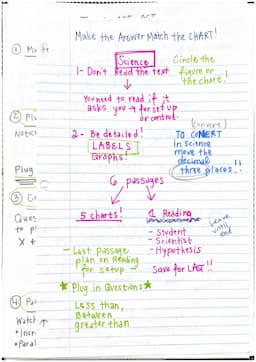 Make the Answer Match the CHART!
① M
Science
Circle the
figure or
the chart!
1- Don't Read the text
You need to read if it
asks you → for set up
or control.
② Pl
Notic
2- Be detailed!
LABELS
Graphs!
(convert)
TO CONVERT
in science
move the
decimal
three places..!!
Plug
6 passages
③ G
Ques
to p
X +
5 charts!
1 Reading
- Student
- Scientist
- Hypothesis
Leave
until
end
- Last passage
plan on Reading
for setup
Save for LAST!!
★ Plug in Questions ★
Less than,
Between,
greater than
④ Pa
Watch
• Incr
• Paral